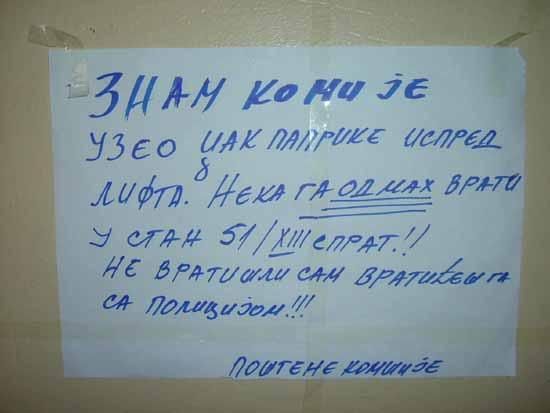 ЗНАМ КО МИ ЈЕ
УЗЕО ЏАК ПАПРИКЕ ИСПРЕД
ЛИФТА. НЕКА ГА ОДМАХ ВРАТИ
У СТАН 51/XIII СПРАТ.!!
НЕ ВРАТИШ ЛИ САМ ВРАТИЋЕШ ГА
СА ПОЛИЦИЈОМ!!!
ПОШТЕНЕ КОМШИЈЕ